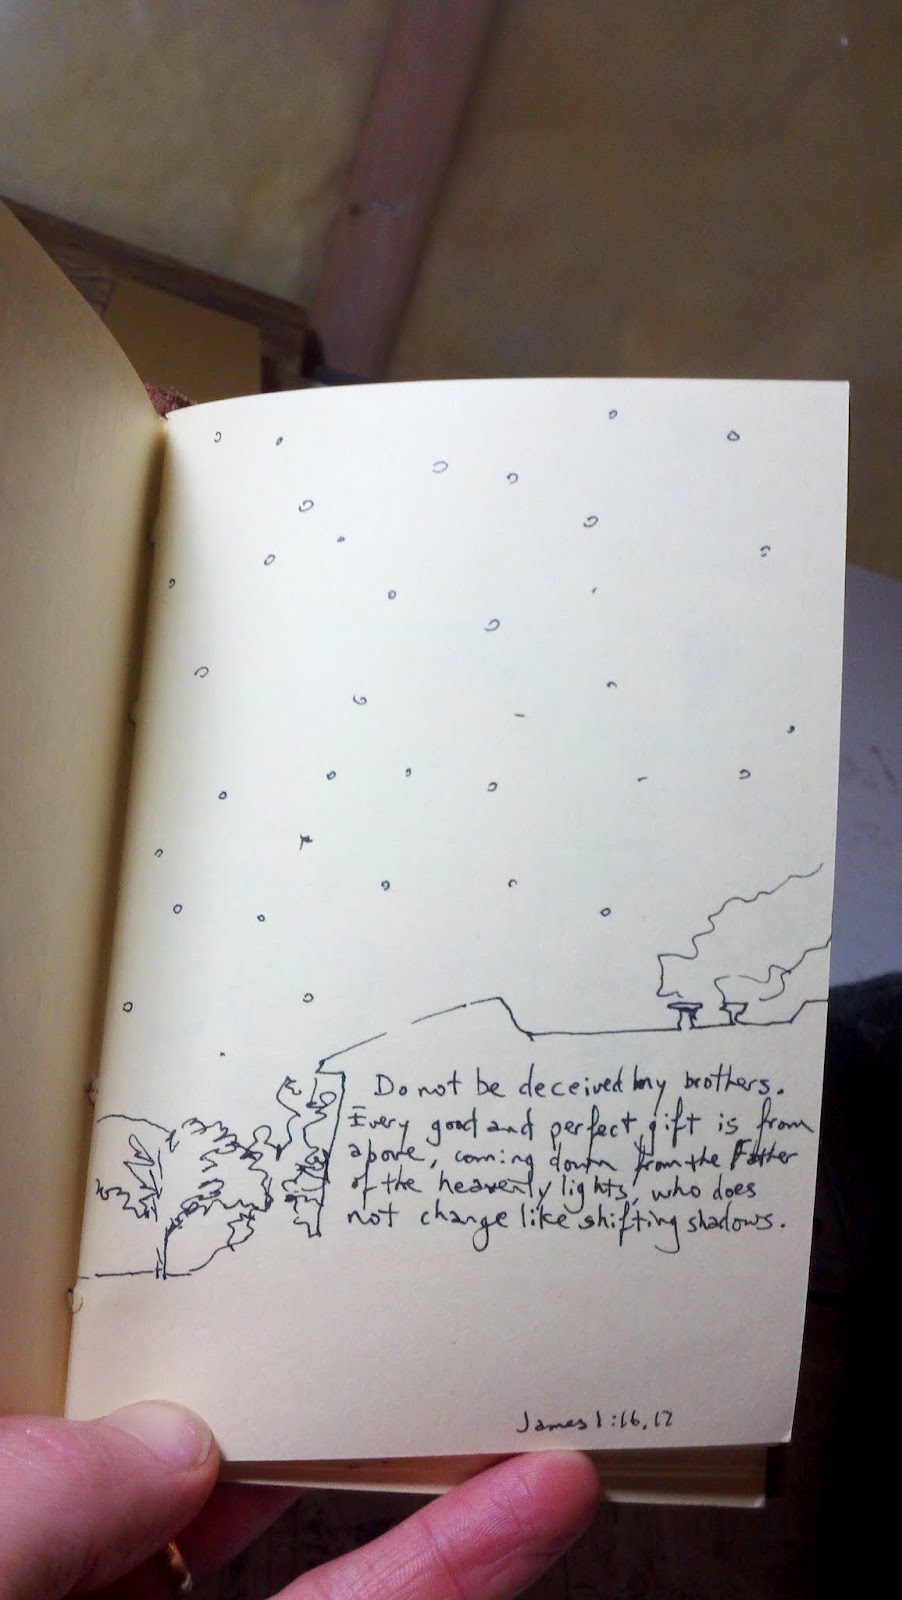 Do not be deceived my brothers.
Every good and perfect gift is from
above, coming down from the Father
of the heavenly lights, who does
not change like shifting shadows.
James 1:16,17